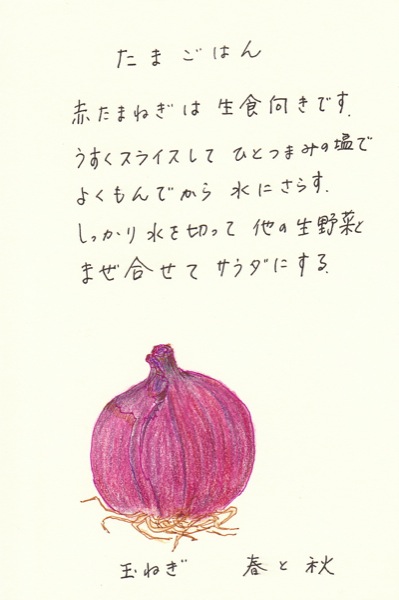 たまごはん
赤たまねぎは 生食向きです.
うすくスライスして ひとつまみの塩で
よくもんでから 水にさらす.
しっかり水を切って 他の生野菜と
まぜ合せて サラダにする.
玉ねぎ 春と秋